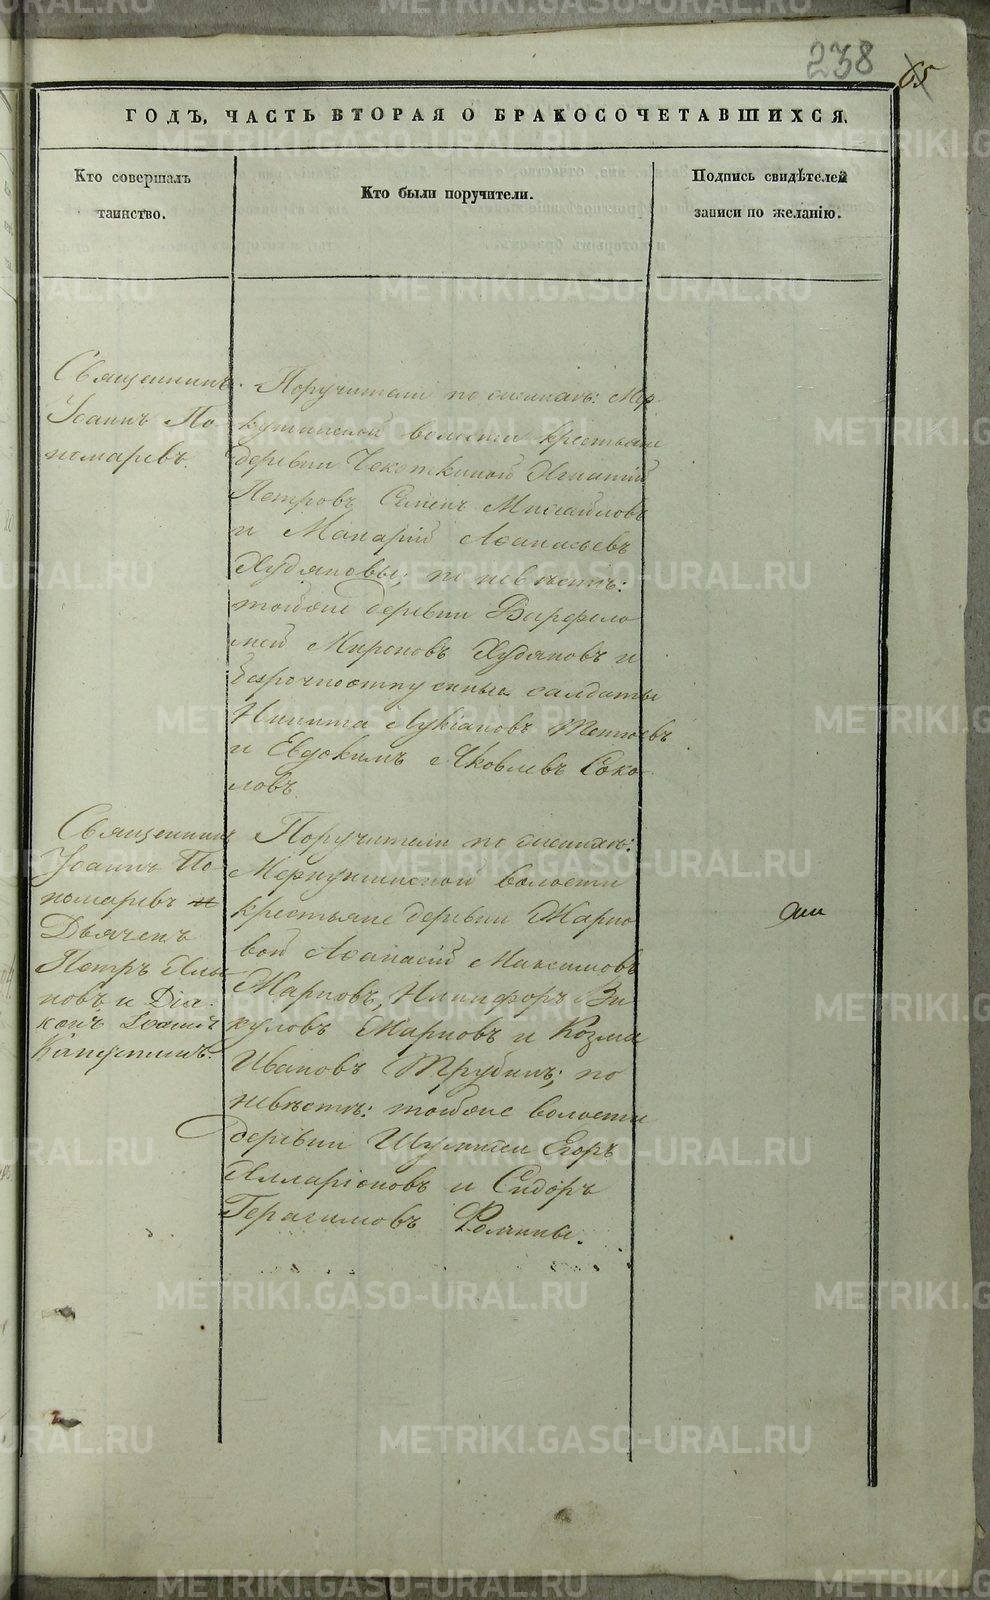 238
65
ГОДЪ, ЧАСТЬ ВТОРАЯ О БРАКОСОЧЕТАВШИХСЯ.
Кто совершалъ
таинство.
Кто были поручители.
Подпись свидѣтелей
записи по желанію.
Священникъ
Іоаннъ По-
номаревъ.
Поручители по женихѣ: Мер-
кушинской волости крестьяне
деревни Чекоткиной Игнатій
Петровъ, Симеонъ Михайловъ
и Макарій Аѳанасьевъ
Худяковы; по невѣстѣ:
тойже деревни Варфоло
мей Мироновъ Худяковъ и
безрочноотпускные салдаты
Никита Лукіановъ
и Евдокимъ Яковлевъ Соко-
ловъ.
Священникъ
Іоаннъ По-
номаревъ и
Дьячекъ
Петръ
и Діа-
конъ Іоаннъ
Поручители по женихѣ:
Меркушинской волости
крестьяне деревни Жарко
вой Аѳанасій Максимовъ
Жарковъ, Никифоръ Ви
куловъ Жарковъ и Козма
Ивановъ Трубинъ; по
невѣстѣ: тойже волости
деревни Егоръ
Илларіоновъ и Сидоръ
Герасимовъ
METRIKI.GASO-URAL.RU